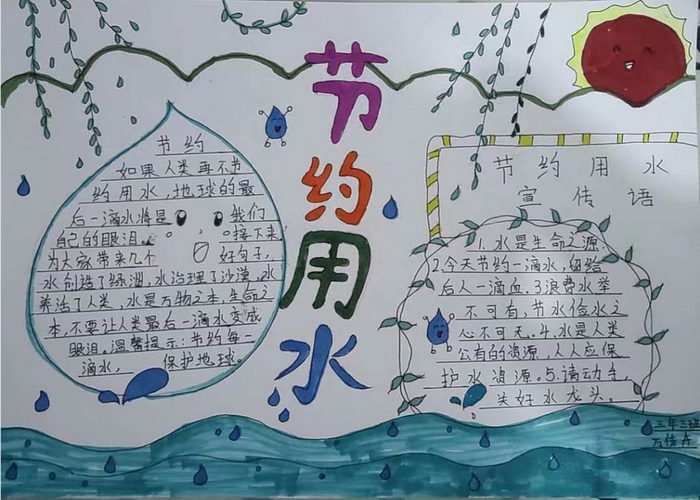 节约用水
节约
如果人类再不节
约用水,地球的最
后一滴水将是 我们
自己的眼泪。 接下来
为大家带来几个 好句子,
水创造了绿洲,水治理了沙漠,水
养活了人类,水是万物之本,生命之
本,不要让人类最后一滴水变成
眼泪。温馨提示:节约每一
滴水, 保护地球。
节约用水
宣传语
1.水是生命之源
2.今天节约一滴水,留给
后人一滴血.3.浪费水举
不可有,节水俭水之
心不可无.4.水是人类
公有的资源,人人应保
护水资源。5.请动手,
关好水龙头。
三年三班